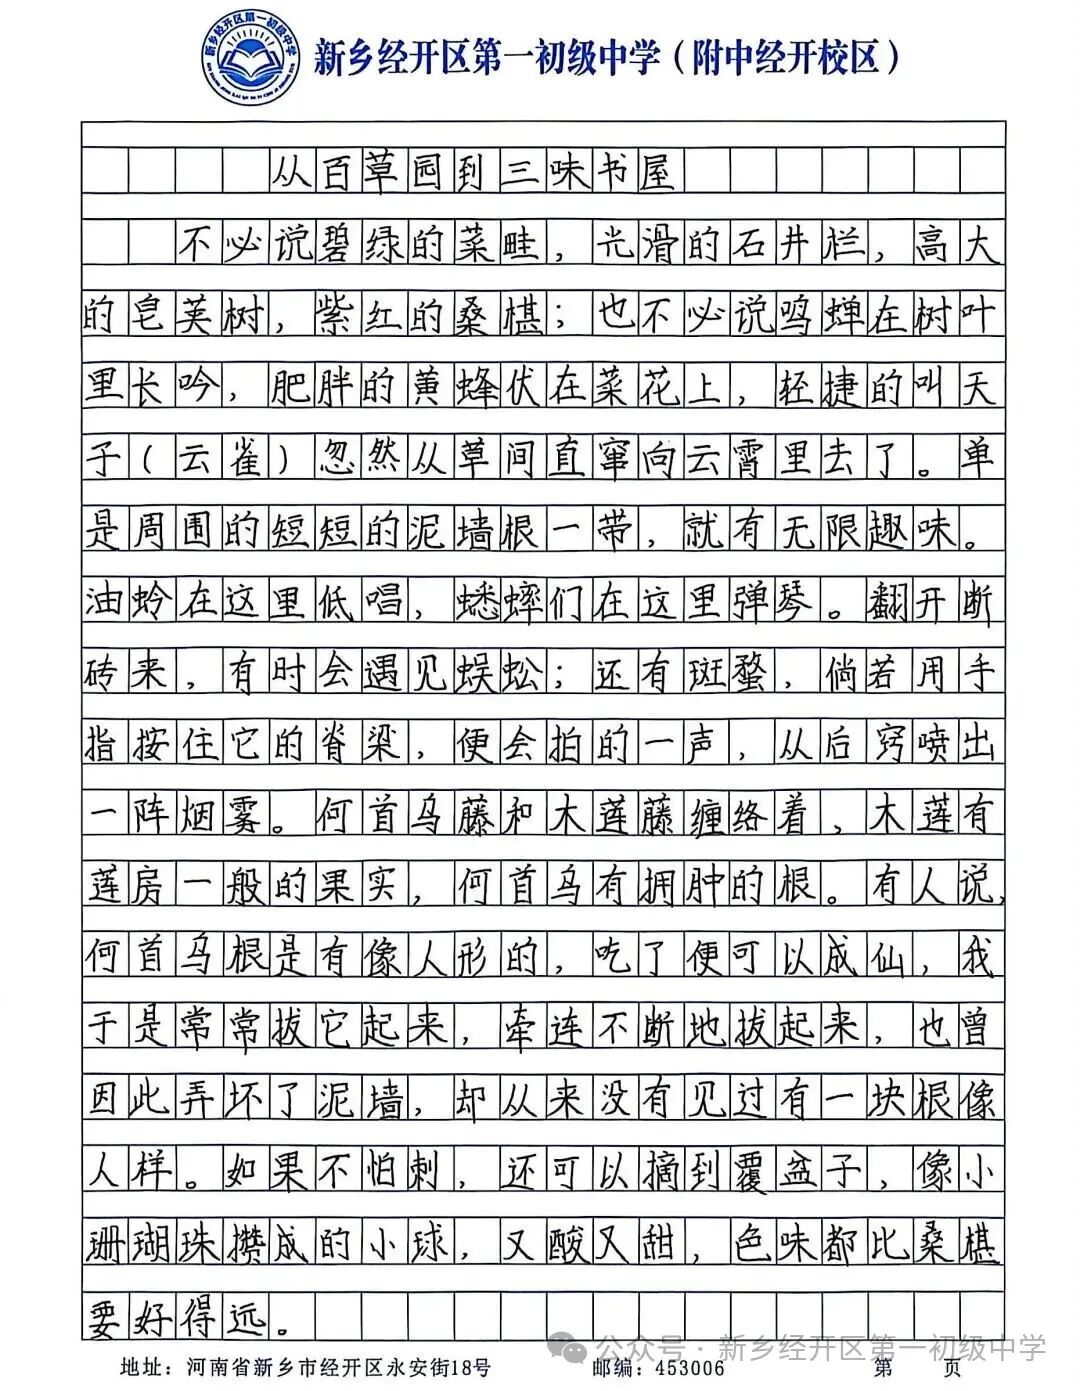 新乡经开区第一初级中学
新乡经开区第一初级中学（附中经开校区）
从百草园到三味书屋
不必说碧绿的菜畦，光滑的石井栏，高大
的皂荚树，紫红的桑椹；也不必说鸣蝉在树叶
里长吟，肥胖的黄蜂伏在菜花上，轻捷的叫天
子（云雀）忽然从草间直窜向云霄里去了。单
是周围的短短的泥墙根一带，就有无限趣味。
油蛉在这里低唱，蟋蟀们在这里弹琴。翻开断
砖来，有时会遇见蜈蚣；还有斑蝥，倘若用手
指按住它的脊梁，便会拍的一声，从后窍喷出
一阵烟雾。何首乌藤和木莲藤缠络着，木莲有
莲房一般的果实，何首乌有拥肿的根。有人说，
何首乌根是有像人形的，吃了便可以成仙，我
于是常常拔它起来，牵连不断地拔起来，也曾
因此弄坏了泥墙，却从来没有见过有一块根像
人样。如果不怕刺，还可以摘到覆盆子，像小
珊瑚珠攒成的小球，又酸又甜，色味都比桑椹
要好得远。
公众号·新乡经开区第一初级中学
地址：河南省新乡市经开区永安街18号 邮编：453006 第 页